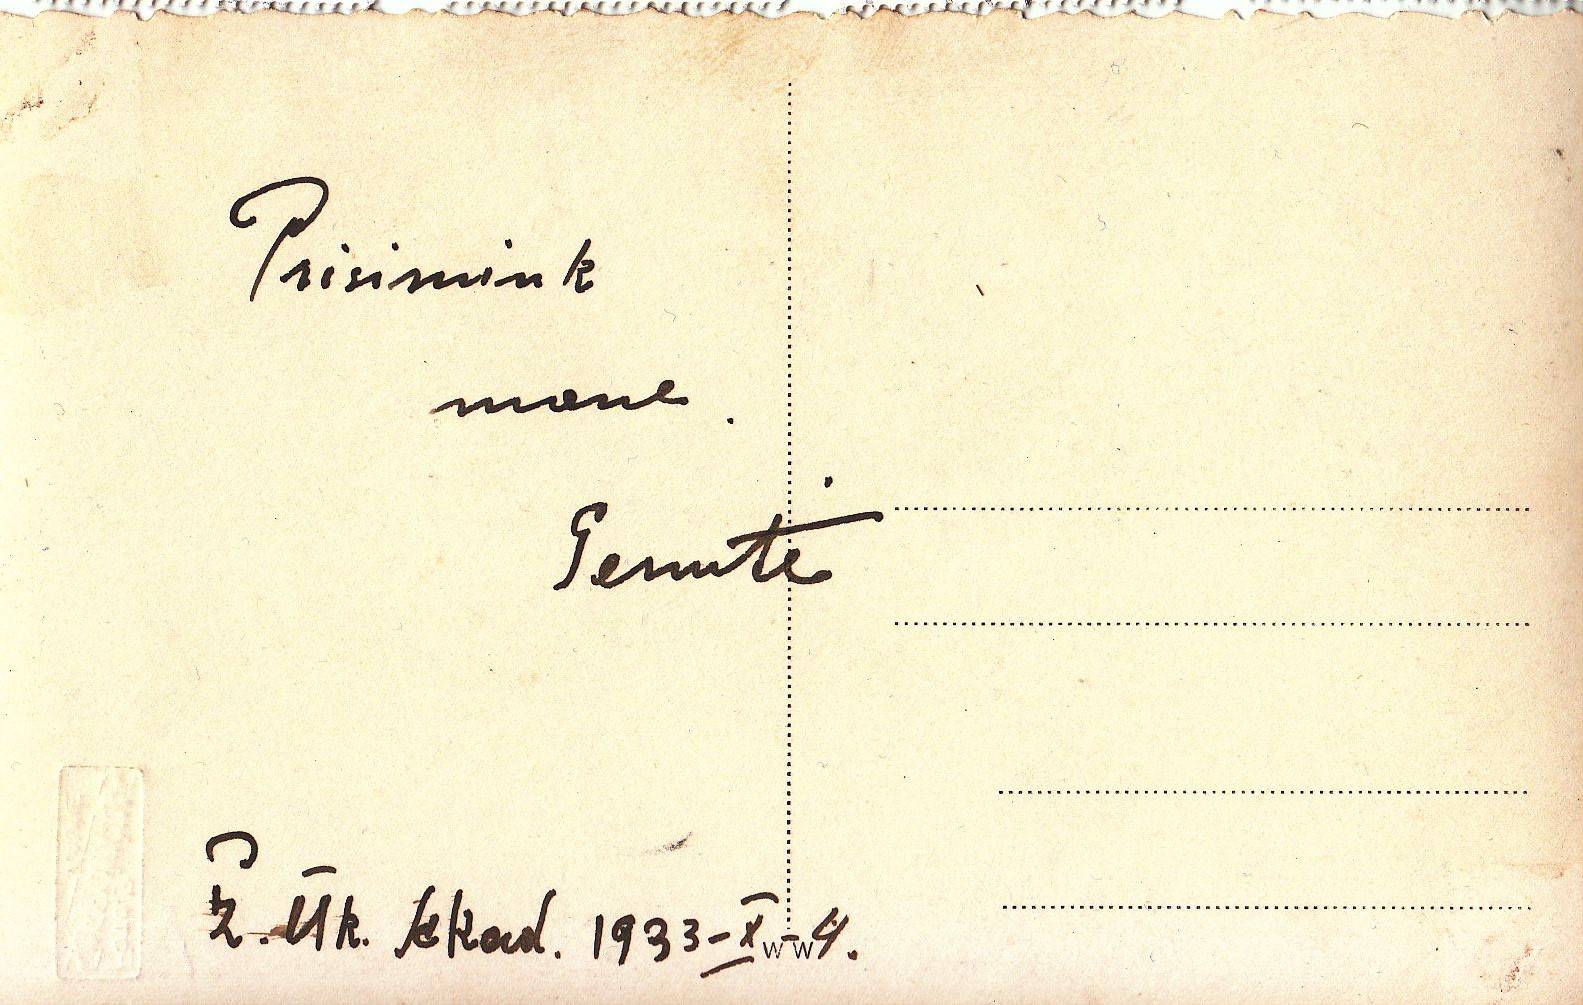 Prisimink
mane.
Genutė
Ž. Ūk. Akad. 1933-X-4.
WW